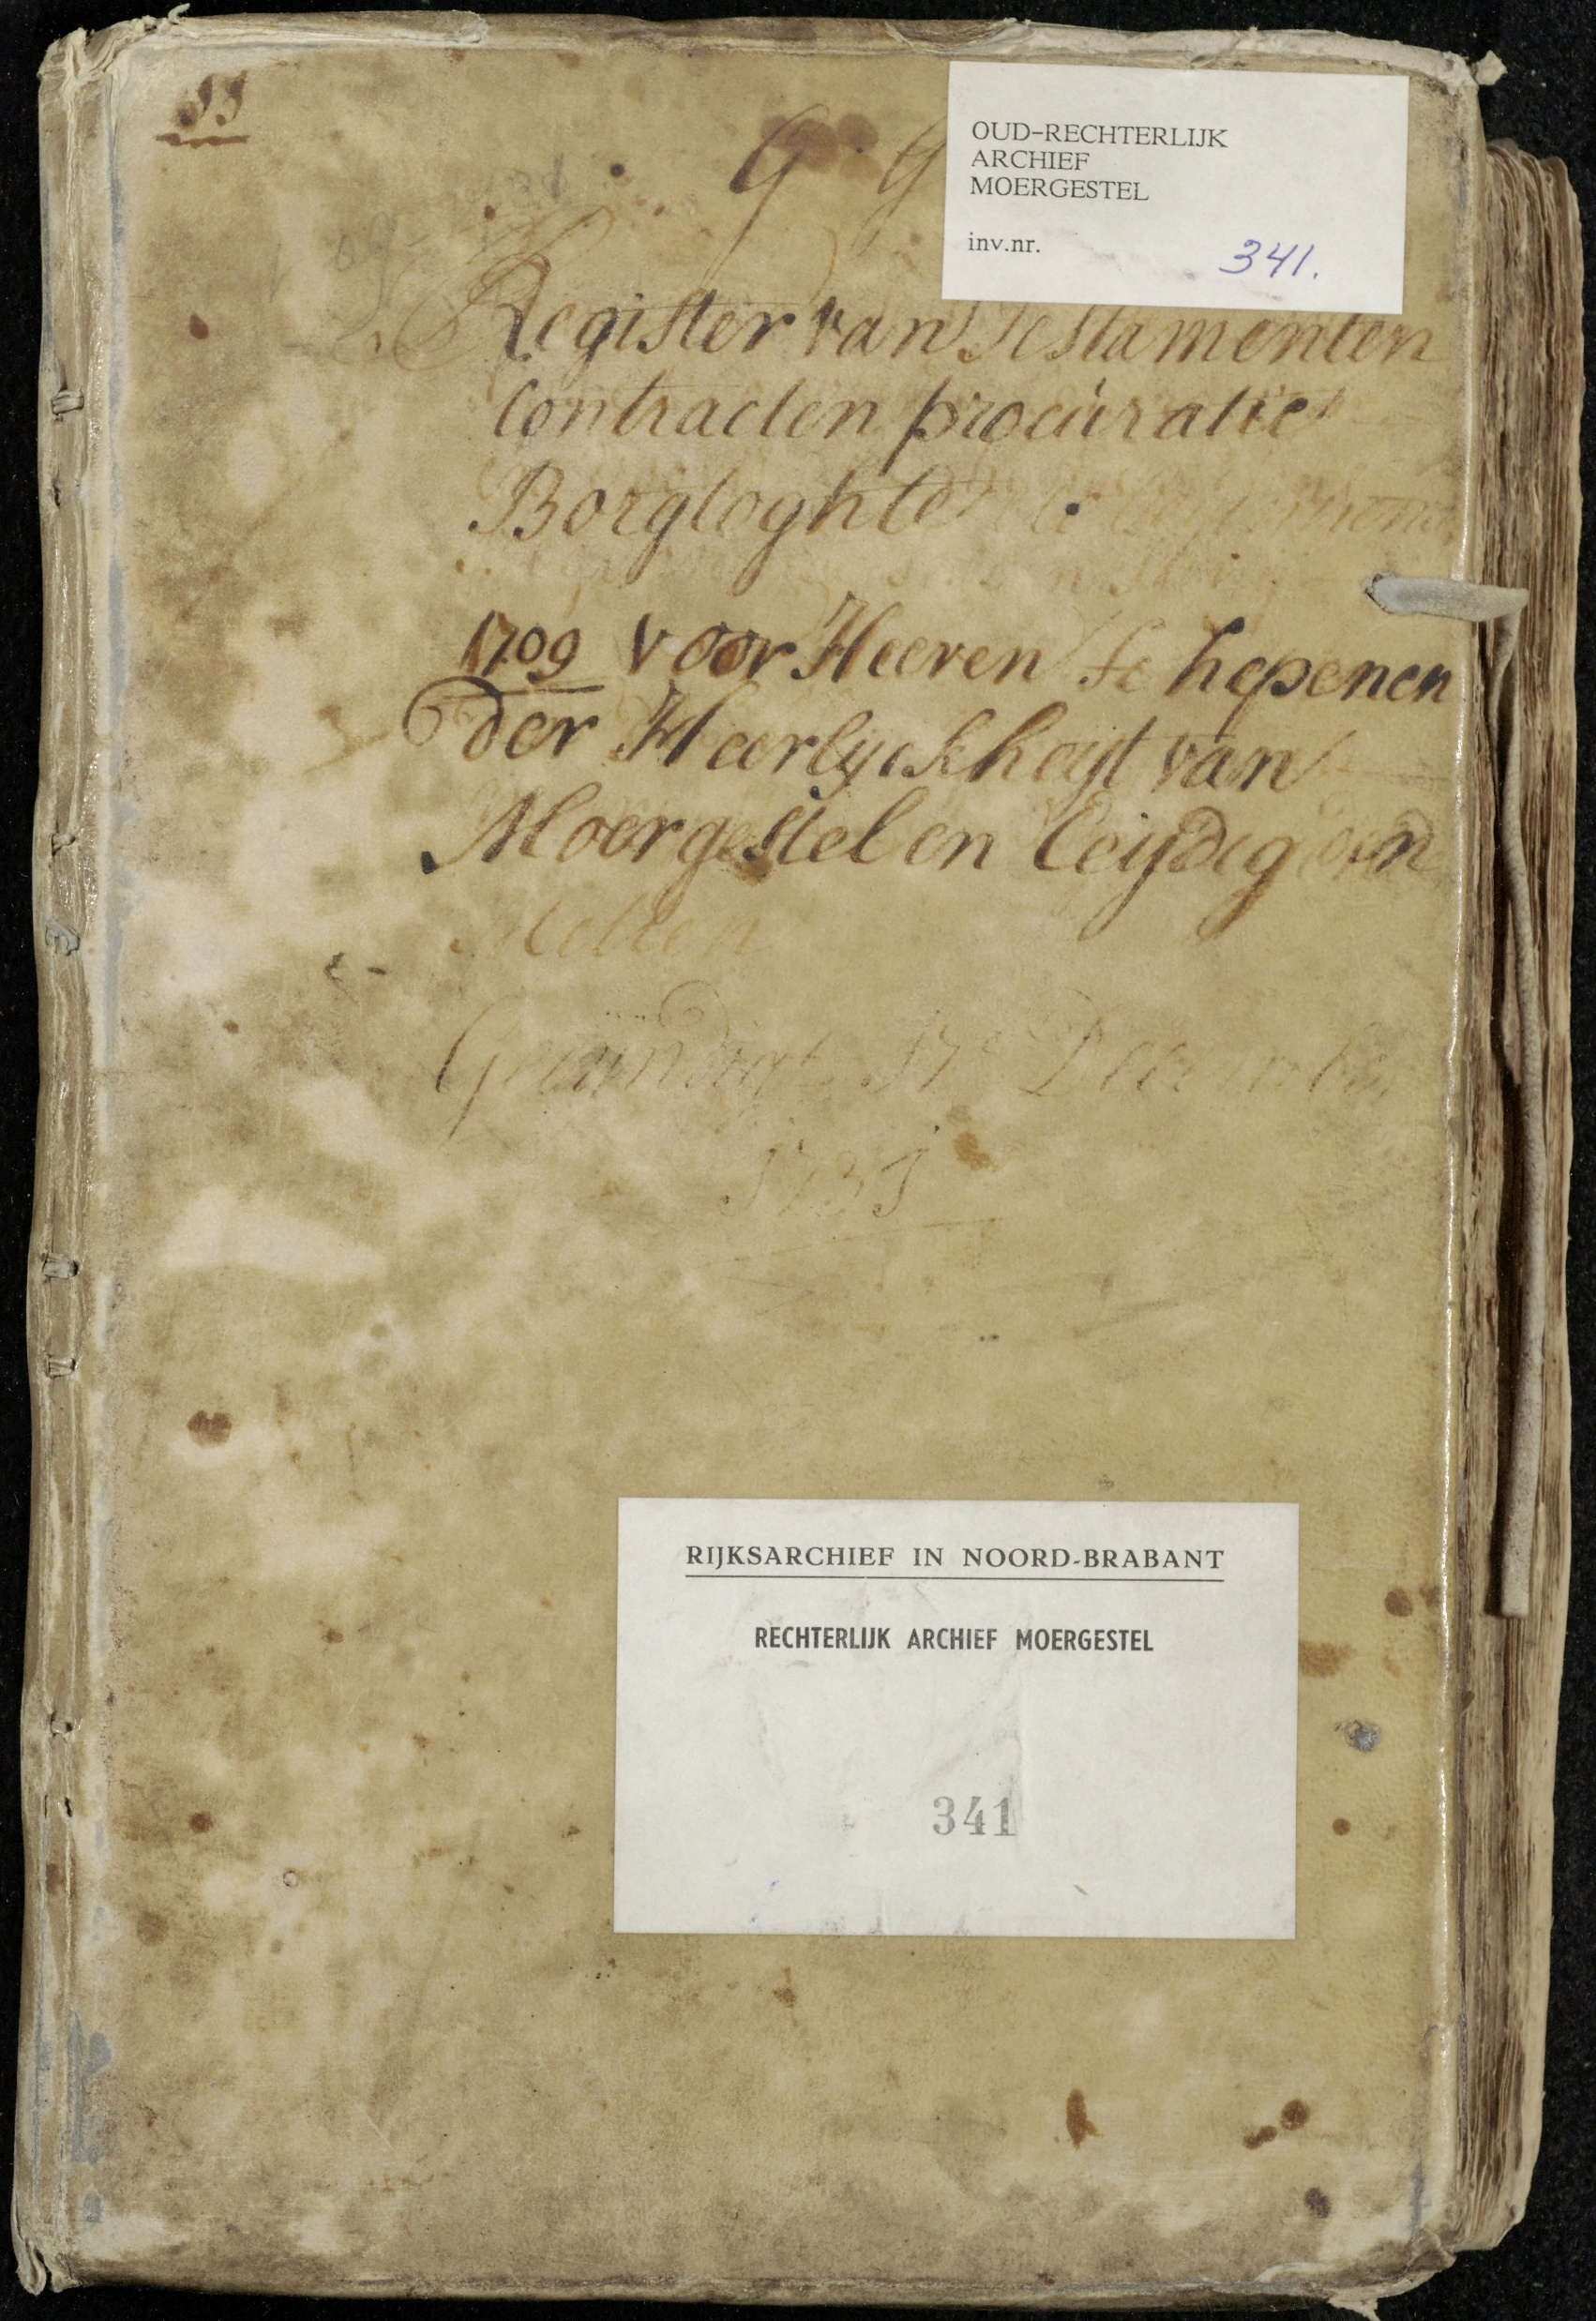 55
G G
OUD-RECHTERLIJK
ARCHIEF
MOERGESTEL
inv.nr. 341.
Register van Testamenten
Contracten procuratie
Borgtoghte
1709 voor Heeren Schepenen
der Heerlyckheyt van
Moergestel en Ceijdig
Geeindigt 17e December
1731
RIJKSARCHIEF IN NOORD-BRABANT
RECHTERLIJK ARCHIEF MOERGESTEL
341